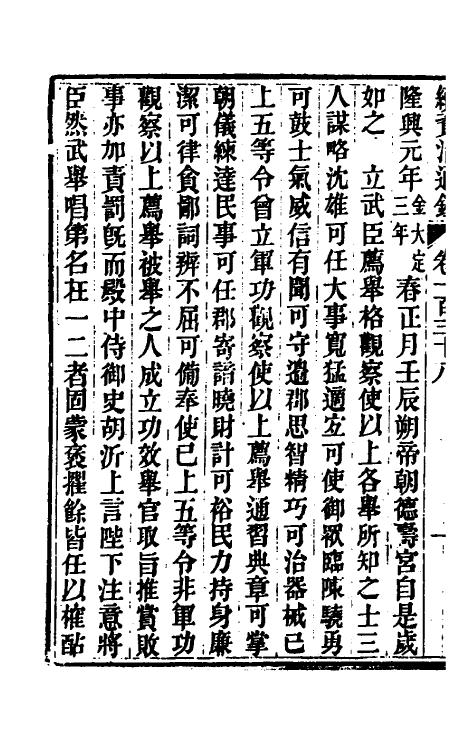 續資治通鑑 卷一百三十八
隆興元年金大定三年春正月壬辰朔帝朝德壽宮自是歲
如之 立武臣薦舉格觀察使以上各舉所知之士三
人謀略沈雄可任大事寬猛適宜可使御眾臨陳驍勇
可鼓士氣威信有聞可守邊郡思智精巧可治器械已
上五等令曾立軍功觀察使以上薦舉通習典章可掌
朝儀練達民事可任郡寄諳曉財計可裕民力持身廉
潔可律貪鄙詞辨不屈可備奉使已上五等令非軍功
觀察以上薦舉被舉之人成立功效舉官取旨推賞敗
事亦加責罰旣而殿中侍御史胡沂上言陛下注意將
臣然武舉唱第名在一二者固蒙褒擢餘皆任以榷酤